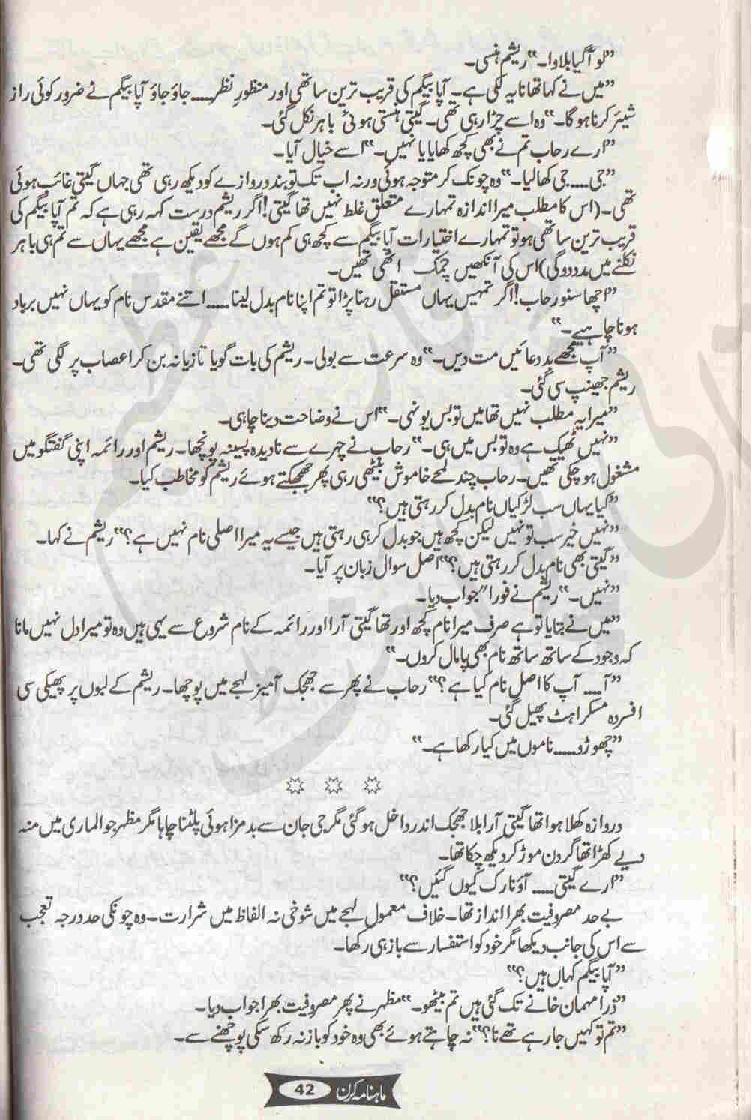 ”لو آگیا بلاوا۔“ ریشم ہنسی۔
”میں نے کہا تھا نا یہ لکی ہے۔ آپا بیگم کی قریب ترین ساتھی اور منظورِ نظر..... جاؤ جاؤ آپا بیگم نے ضرور کوئی راز
شیئر کرنا ہوگا۔“ وہ اسے چڑا رہی تھی۔ گیتی ہنستی ہوئی باہر نکل گئی۔
”ارے رحاب تم نے بھی کچھ کھایا یا نہیں۔“ اسے خیال آیا۔
”جی..... جی کھا لیا۔“ وہ چونک کر متوجہ ہوئی ورنہ اب تک تو بند دروازے کو دیکھ رہی تھی جہاں گیتی غائب ہوئی
تھی۔ (اس کا مطلب میرا اندازہ تمہارے متعلق غلط نہیں تھا گیتی! اگر ریشم درست کہہ رہی ہے کہ تم آپا بیگم کی
قریب ترین ساتھی ہو تو تمہارے اختیارات آپا بیگم سے کچھ ہی کم ہوں گے مجھے یقین ہے مجھے یہاں سے تم ہی باہر
نکلنے میں مدد دو گی) اس کی آنکھیں چمک اٹھی تھیں۔
”اچھا سنو رحاب! اگر تمہیں یہاں مستقل رہنا پڑا تو تم اپنا نام بدل لینا..... اتنے مقدس نام کو یہاں نہیں برباد
ہونا چاہیے۔“
”آپ مجھے بددعائیں مت دیں۔“ وہ سرعت سے بولی۔ ریشم کی بات گویا تازیانہ بن کر اعصاب پر لگی تھی۔
ریشم جھینپ سی گئی۔
”میرا یہ مطلب نہیں تھا میں تو بس یونہی۔“ اس نے وضاحت دینا چاہی۔
”نہیں ٹھیک ہے وہ تو بس میں ہی۔“ رحاب نے چہرے سے نادیدہ پسینہ پونچھا۔ ریشم اور رائمہ اپنی گفتگو میں
مشغول ہو چکی تھیں۔ رحاب چند لمحے خاموش بیٹھی رہی پھر جھجکتے ہوئے ریشم کو مخاطب کیا۔
”کیا یہاں سب لڑکیاں نام بدل کر رہتی ہیں؟“
”نہیں خیر سب تو نہیں لیکن کچھ ہیں جو بدل کر ہی رہتی ہیں جیسے یہ میرا اصلی نام نہیں ہے؟“ ریشم نے کہا۔
”گیتی بھی نام بدل کر رہتی ہیں؟“ اصل سوال زبان پر آیا۔
”نہیں۔“ ریشم نے فوراً جواب دیا۔
”میں نے بتایا تو ہے صرف میرا نام کچھ اور تھا گیتی آرا اور رائمہ کے نام شروع سے یہی ہیں وہ تو میرا دل نہیں مانا
کہ وجود کے ساتھ ساتھ نام بھی پامال کروں۔“
”آ..... آپ کا اصل نام کیا ہے؟“ رحاب نے پھر سے جھجک آمیز لہجے میں پوچھا۔ ریشم کے لبوں پر پھیکی سی
افسردہ مسکراہٹ پھیل گئی۔
”چھوڑو..... ناموں میں کیا رکھا ہے۔“
☼ ☼ ☼
دروازہ کھلا ہوا تھا گیتی آرا بلا جھجک اندر داخل ہو گئی مگر جی جان سے بدمزا ہوئی پلٹنا چاہا مگر مظہر جو الماری میں منہ
دیے کھڑا تھا گردن موڑ کر دیکھ چکا تھا۔
”ارے گیتی..... آؤ نا رک کیوں گئیں؟“
بے حد مصروفیت بھرا انداز تھا۔ خلاف معمول لہجے میں شوخی نہ الفاظ میں شرارت۔ وہ چونکی حد درجہ تعجب
سے اس کی جانب دیکھا مگر خود کو استفسار سے باز ہی رکھا۔
”آپا بیگم کہاں ہیں؟“
”ذرا مہمان خانے تک گئی ہیں تم بیٹھو۔“ مظہر نے پھر مصروفیت بھرا جواب دیا۔
”تم تو کہیں جا رہے تھے نا؟“ نہ چاہتے ہوئے بھی وہ خود کو باز نہ رکھ سکی پوچھنے سے۔
ماہنامہ کرن 42